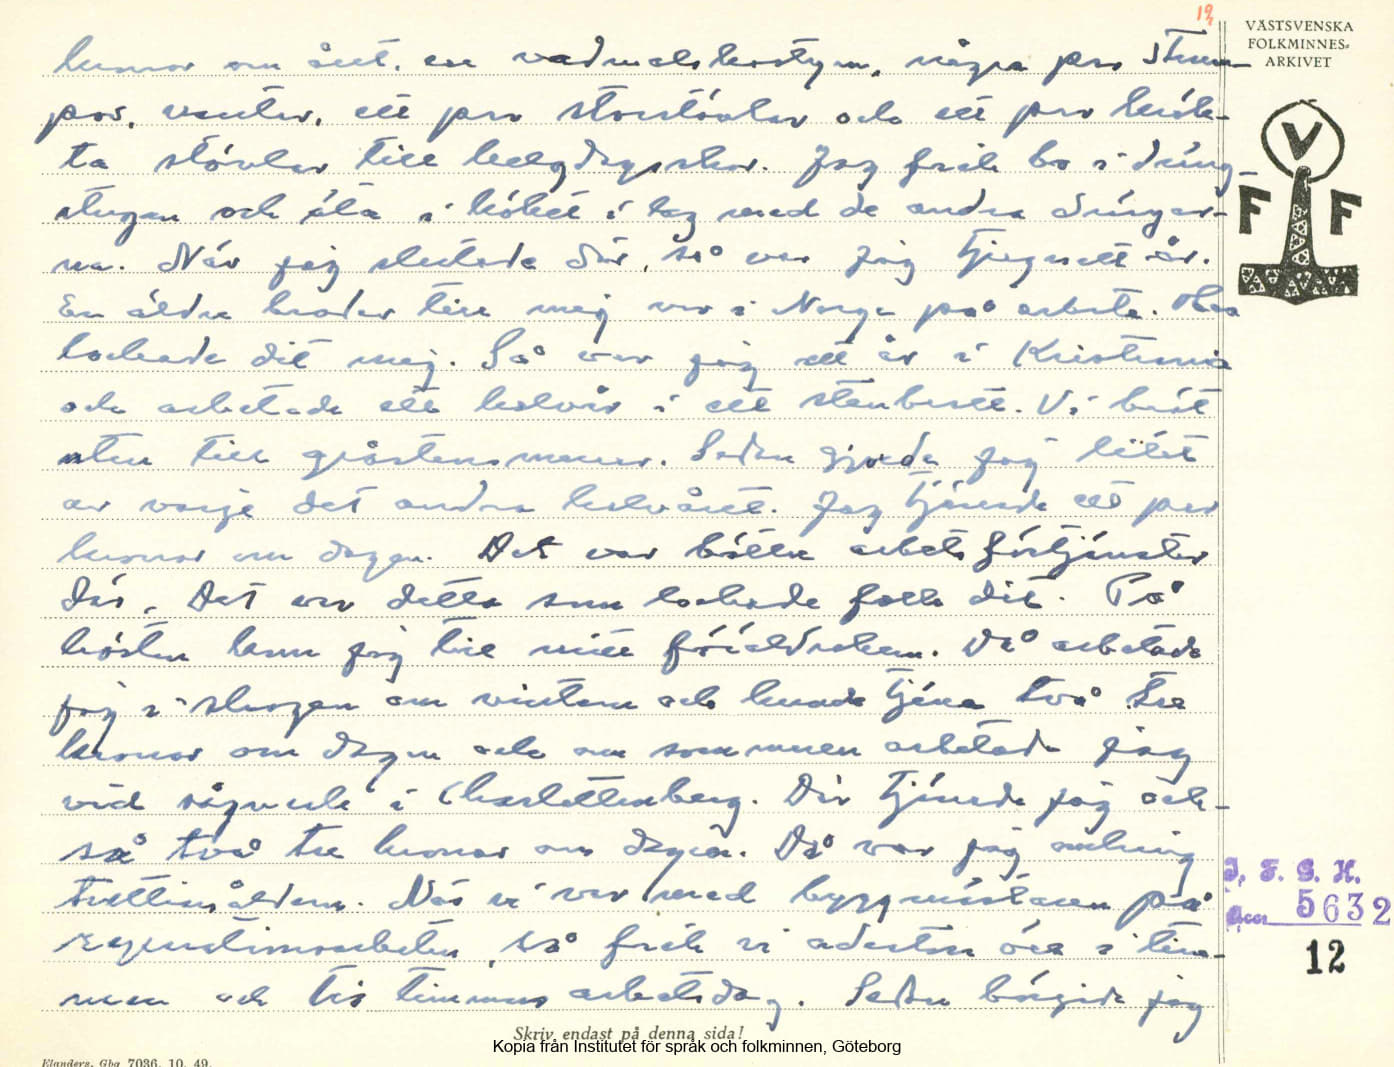 12
VÄSTSVENSKA
FOLKMINNES-
ARKIVET
kronor om året, en vadmalskostym, några par strum-
por, vantar, ett par storstövlar och ett par knäk-
ta stövlar till helgdagsskor. Jag fick bo i dräng-
stugan och äta i köket i lag med de andra drängar-
na. När jag slutade där, så var jag tjugoett år.
En äldre broder till mig var i Norge på arbete. Han
lockade dit mej. Så var jag ett år i Kristiania
och arbetade ett halvår i ett stenbrott. Vi bröt
sten till gråstensmurar. Sedan gjorde jag litet
av varje det andra halvåret. Jag tjänade ett par
kronor om dagen. Det var bättre arbetsförtjänster
där. Det var detta som lockade folk dit. På
hösten kom jag till mitt föräldrahem. Då arbetade
jag i skogen om vintern och kunde tjäna två tre
kronor om dagen och om sommaren arbetade jag
vid sågverk i Charlottenberg. Där tjänade jag ock-
så två tre kronor om dagen. Då var jag omkring
trettioåldern. När vi var med byggmästaren på
reparationsarbeten, så fick vi aderton öre i tim-
men och tio timmars arbetsdag. Sedan började jag
V
F F
I. F. G. H.
5632
12
Skriv endast på denna sida!
Kopia från Institutet för språk och folkminnen, Göteborg
Elanders, Gbg 7036. 10. 49.